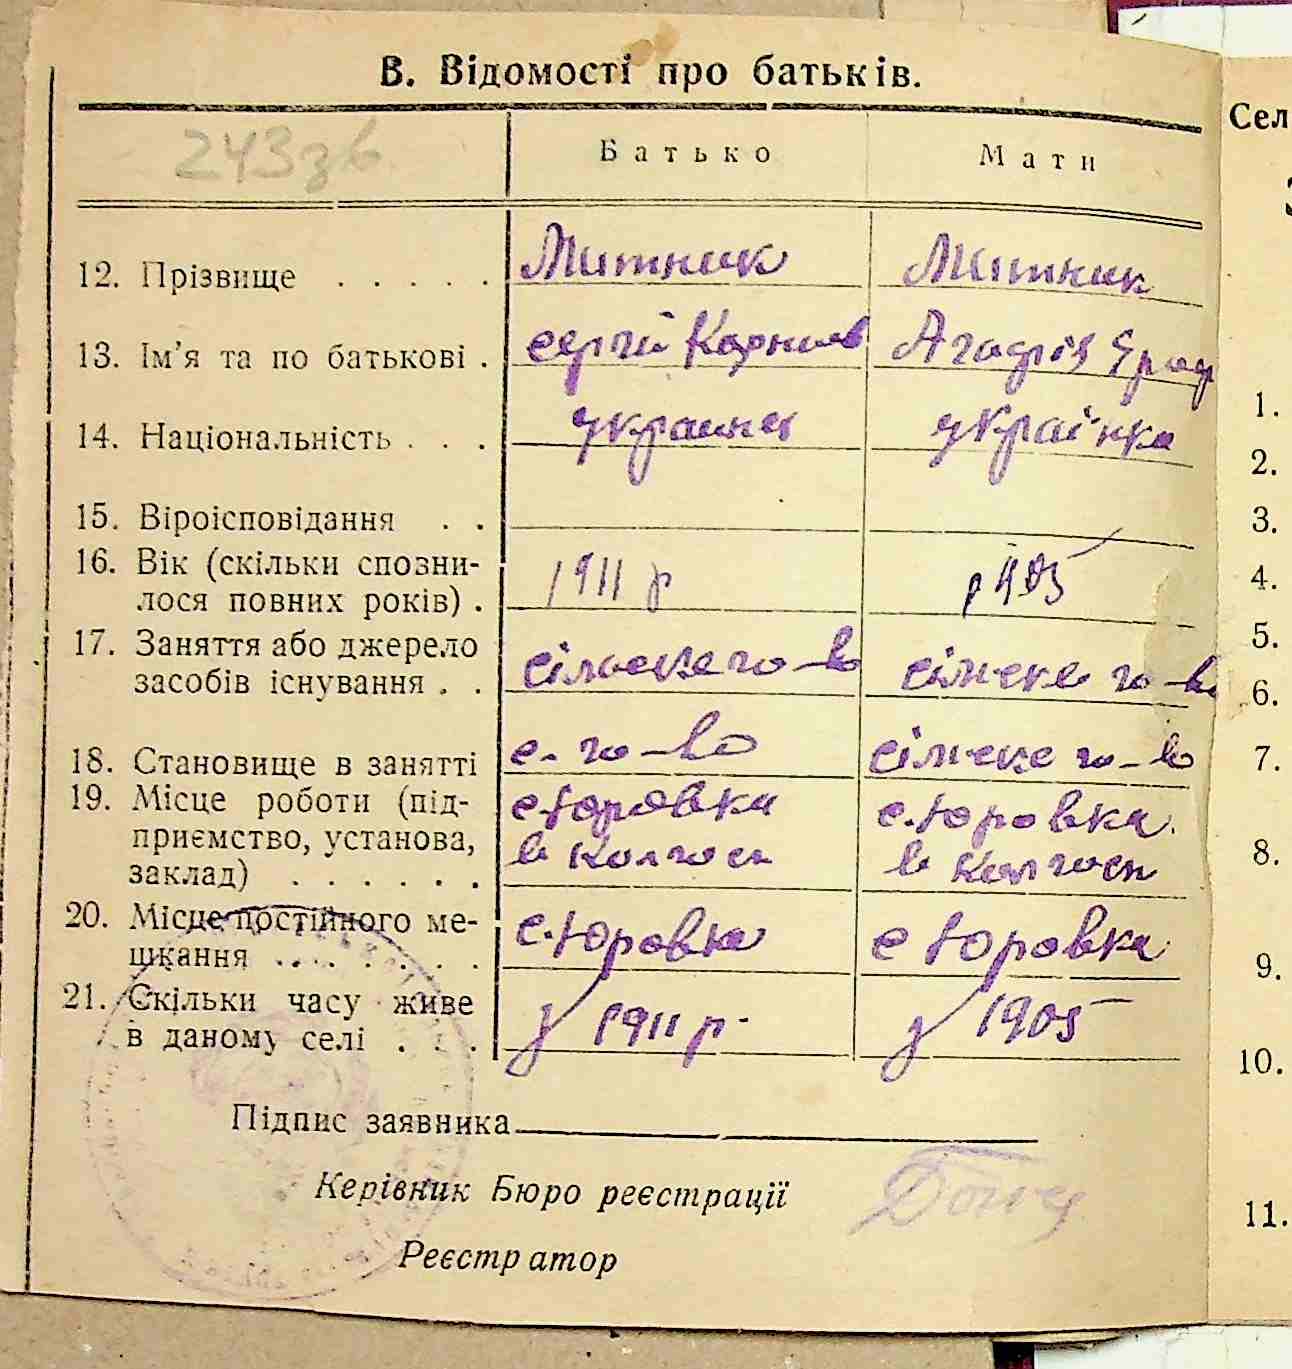 В. Відомості про батьків.
243зв
Батько Мати
12. Прізвище . . . . . Митник Митник
13. Ім'я та по батькові . Сергій Корниев Агафія Ераф
14. Національність . . . украинец українка
15. Віроісповідання . .
16. Вік (скільки спозни-
лося повних років) . 1911 р р 1905
17. Заняття або джерело
засобів існування . . сільске го-во сільске го-во
18. Становище в занятті с. го-во сільске го-во
19. Місце роботи (під- с. Юровка с. Юровка
приємство, установа, в колгосп в колгосп
заклад) . . . . . .
20. Місце постійного ме- с. Юровка с Юровка
шкання . . . . . . .
21. Скільки часу живе
в даному селі . . . з 1911 р. з 1905
Підпис заявника
Керівник Бюро реєстрації
Реєстратор
Сел
1.
2.
3.
4.
5.
6.
7.
8.
9.
10.
11.